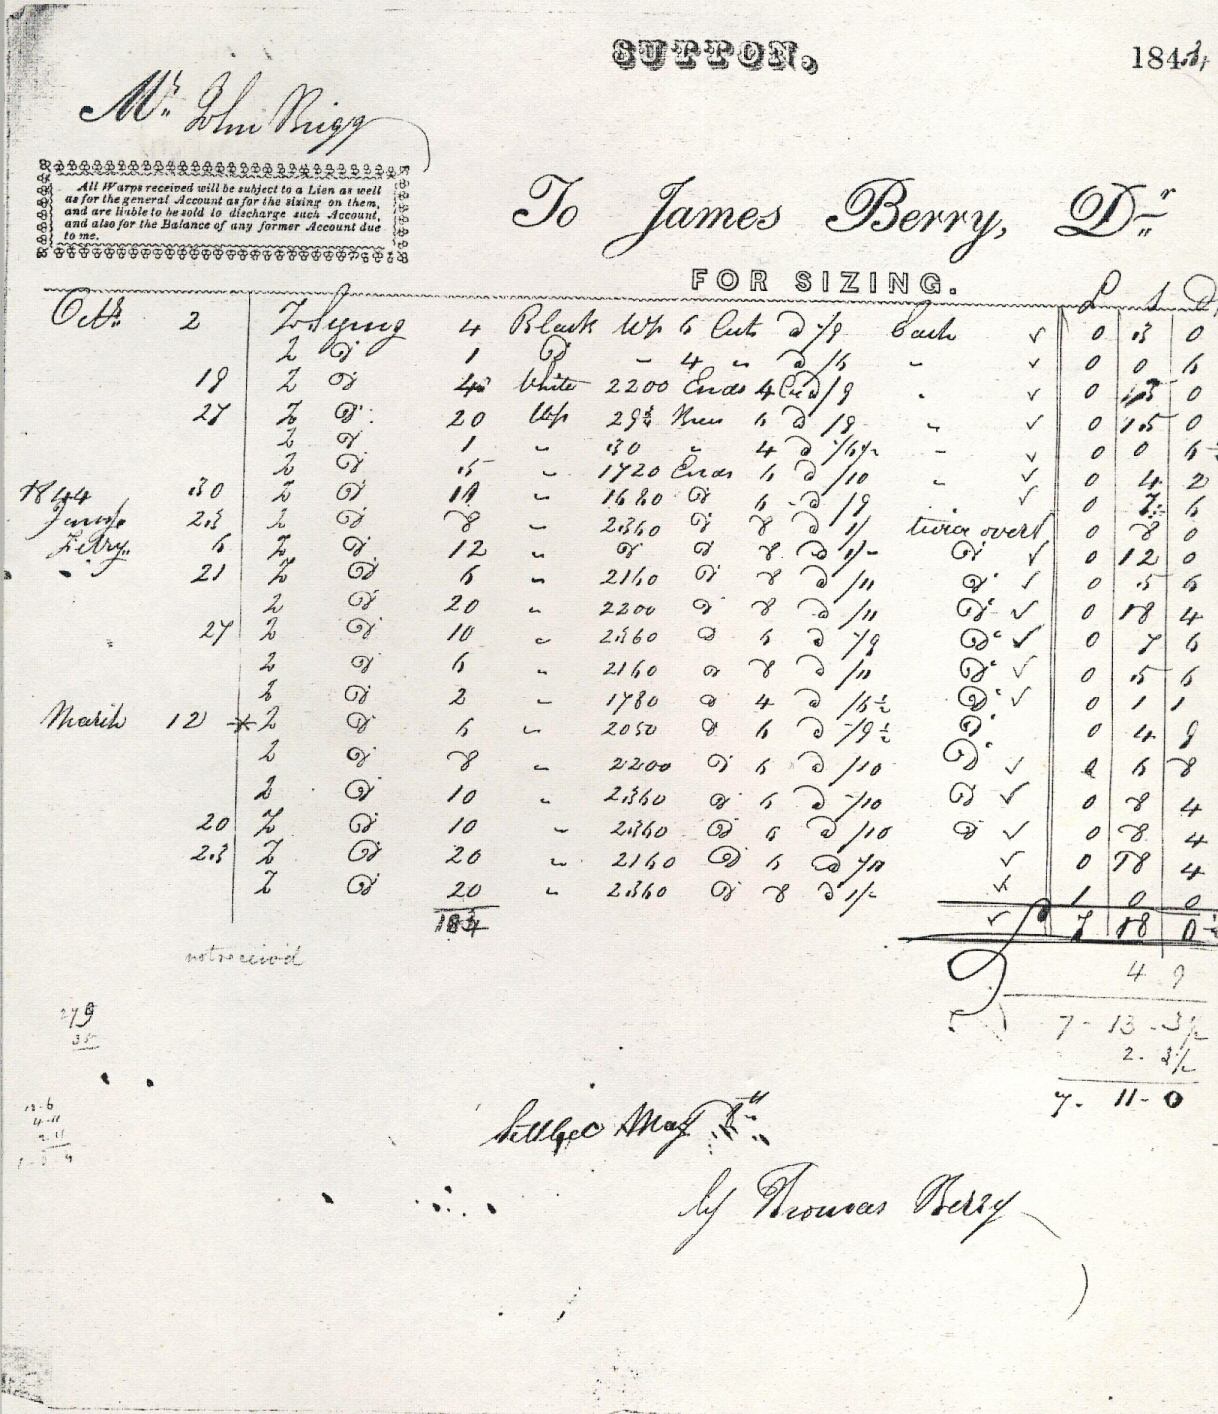 SUTTON, 184
Mr. John Brigg
All Warps received will be subject to a Lien as well
as for the general Account as for the sizing on them,
and are liable to be sold to discharge such Account,
and also for the Balance of any former Account due
to me.
To James Berry, Dr.
FOR SIZING.
£ s D
Octr. 2 4 Black Wp 6 Cuts @ /9 Each ✓ 0 3 0
1 Do „ 4 „ @ /6 „ ✓ 0 0 6
19 4 White 2200 Ends 4 @ /9 ✓ 0 3 0
27 20 Wp 6 @ /9 „ ✓ 0 15 0
1 „ 30 „ 4 @ /6½ „ ✓ 0 0 6½
5 „ 1720 Ends 6 @ /10 „ ✓ 0 4 2
30 „ 1680 Do 6 @ /9 ✓ 0 7 6
1844
Jany. 23 8 „ 2360 Do 8 @ 1/ twice over ✓ 0 8 0
Febry. 6 12 „ Do Do 8 @ 1/- Do ✓ 0 12 0
21 6 „ 2160 Do 8 @ /11 Do ✓ 0 5 6
20 „ 2200 Do 8 @ /11 Do ✓ 0 18 4
27 10 „ 2360 Do 6 @ /9 Do ✓ 0 7 6
6 „ 2160 Do 8 @ /11 Do ✓ 0 5 6
2 „ 1780 Do 4 @ /6½ Do ✓ 0 1 1
March 12 * 6 „ 2050 Do 6 @ /9½ Do 0 4 9
8 „ 2200 Do 6 @ /10 Do ✓ 0 6 8
10 „ 2360 Do 6 @ /10 Do ✓ 0 8 4
20 10 „ 2360 Do 6 @ /10 Do ✓ 0 8 4
23 20 „ 2160 Do 6 @ /11 ✓ 0 18 4
20 „ 2360 Do 8 @ 1/- ✓ 1 0 0
184 ✓ 7 18 0½
not receivd
4 9
7 - 13 - 3½
2 . 3½
7 . 11 - 0
Settled May
by Thomas Berry